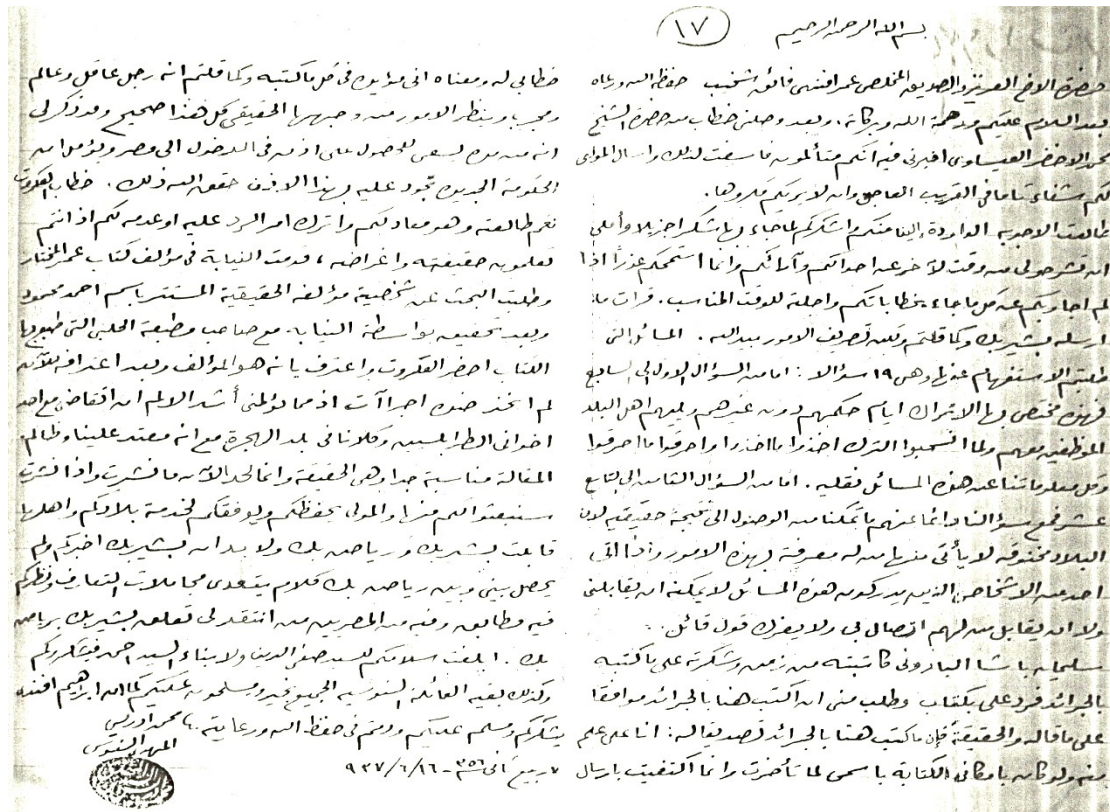 بسم الله الرحمن الرحيم
١٧
حضرة الاخ العزيز والصديق المخلص عمر افندى فائق شنيب حفظه الله ورعاه
بعد السلام عليكم ورحمة الله وبركاته. وبعد وصلنى خطاب من حضرة الشيخ
محمد الاخضر العيساوى اخبرنى فيه انكم متألمون فأسفت لذلك واسأل المولى
لكم شفاء تاما فى القريب العاجل وان لا يريكم مكروها.
طالعت الاجوبه الواردة الينا منكم واشكركم لما جاء بها شكرا جزيلا وأملى
ان تشرحو لى من وقت لآخر عن احوالكم وآرائكم وانما استمحكم عذراً اذا
لم اجاوبكم عن كل ما جاء بخطاباتكم واجلته للوقت المناسب. قرأت ما
ارسله بشير بك وكما قلتم ولكن تصريف الامور بيد الله. المسائل التى
طلبتم الاستفهام عنها وهى ١٩ سؤالا: اما من السؤال الاول الى السابع
فهذه مختص بها الاتراك ايام حكمهم دون غيرهم ويليهم اهل البلد
الموظفين معهم ولما انسحبوا الترك اخذوا ما اخذوا واحرقوا ما احرقوا
وكل معلوماتنا عن هذه المسائل نقليه. اما من السؤال الثامن الى التاسع
عشر فمع سؤالنا دائما عنهم ما تمكنا من الوصول الى نتيجة حقيقيه لان
البلاد مختوقه لا يأتى منها من له معرفة بهذه الامور واذا اتى
احد من الاشخاص الذين يدركون هذه المسائل لا يمكنه ان يقابلنى
ولا ان يقابل من لهم اتصال بى ولا يغرك قول قائل.
سليمان باشا البارونى كاتبته من زمن وشكرته على ما كتبه
بالجرائد فرد على بكتاب وطلب منى ان اكتب هنا بالجرائد موافقا
على ما قاله والحقيقة فإن ما كتب هنا بالجرائد تصديقا له: انا على علم
منه ولو كان بامكانى الكتابة باسمى لما تأخرت وانما اكتفيت بارسال
خطابى له ومعناه انى مؤايده فى كل ما كتبه وكما قلتم انه رجل عاقل وعالم
ومجرب وينظر الامور من وجهها الحقيقى كل هذا صحيح وقد ذكر لى
انه من مدة يسعى للحصول على اذن فى الدخول الى مصر ويؤمل ان
الحكومة الجديدة تجود عليه بهذا الاذن حقق الله ذلك. خطاب الفكروت
نعم طالعته وهو معاد لكم واترك امر الرد عليه او عدمه لكم اذ انتم
تعلمون حقيقته واغراضه، قدمت النيابة فى مؤلف كتاب عمر المختار
وطلبت البحث عن شخصية مؤلفه الحقيقية المستتر باسم احمد محمود
وبعد تحقيق بواسطة النيابه مع صاحب مطبعة الحلبى التى طبع بها
الكتاب احضر الفكروت واعترف بانه هو المؤلف وبعد اعترافه للآن
لم اتخذ ضده اجراآت اذ مما يؤلمنى أشد الالم ان اتقاضى مع احد
اخوانى الطرابلسيين وكلانا فى بلد الهجرة مع انه معتد علينا وظالم.
المقالة مناسبة جدا وهى الحقيقة وانما لحد الآن ما نشرت واذا نشرت
سنبعث لكم منها والمولى يحفظكم ويوفقكم لخدمة بلادكم واهلها
قابلت بشير بك و رياض بك ولا بد ان بشير بك اخبركم ولم
يحصل بينى وبين رياض بك كلام يتعدى مجاملات التعارف ونظركم
فيه مطابق وفيه من المصريين من انتقد لى تعلق بشير بك برياض
بك. ابلغت سلامكم للسيد صفى الدين ولابناء السيد احمد فيشكروكم
وكذلك بقية العائلة السنوسيه الجميع بخير ويسلمون عليكم كما ان ابراهيم افندى
يشكركم ويسلم عليكم ودمتم فى حفظ الله ورعايته. محمد ادريس
المهدى السنوسى
٧ ربيع ثانى سنة ٣٥٦ - ١٦/٦/٩٣٧